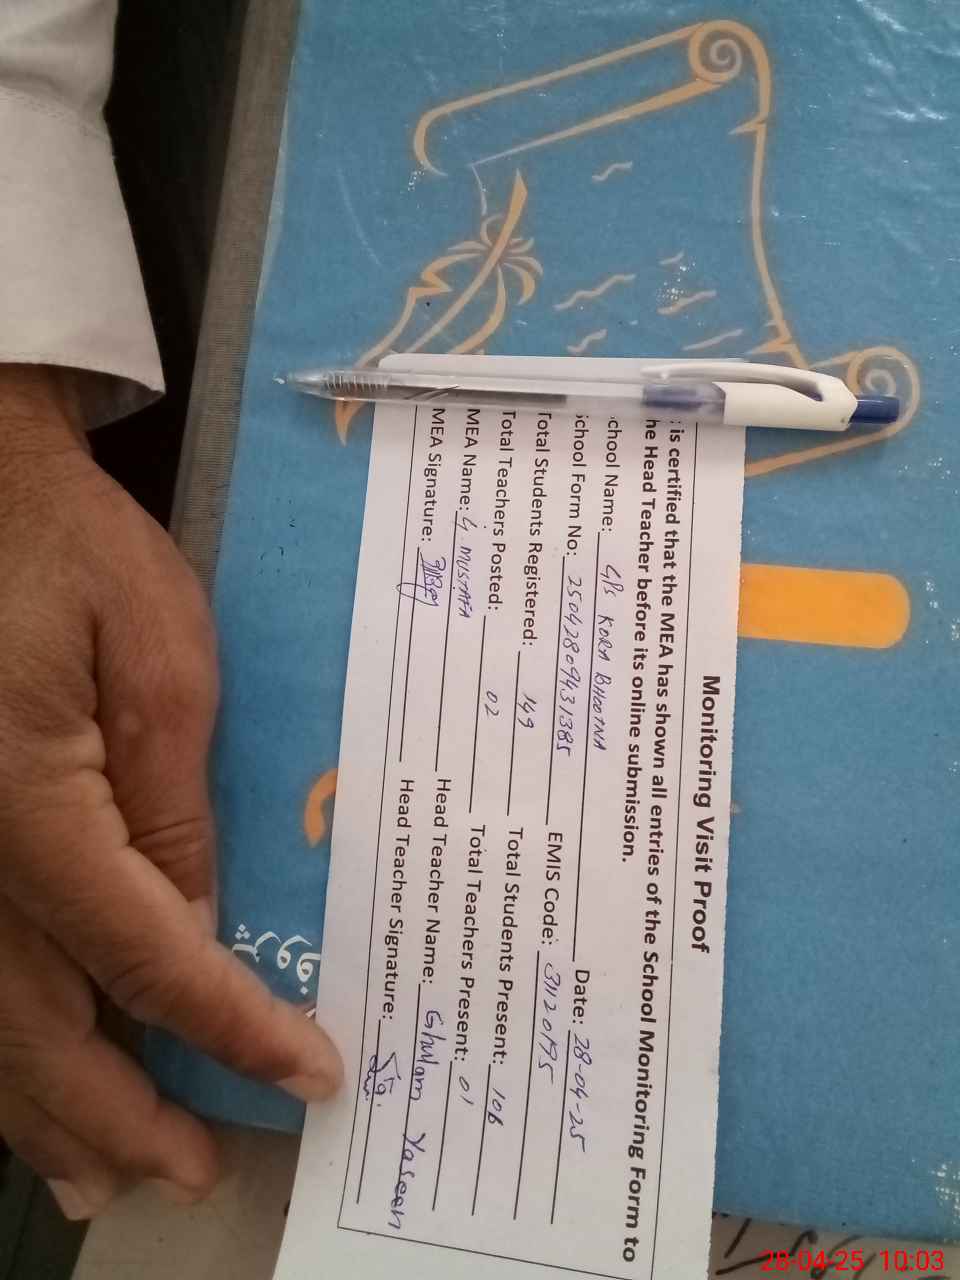 Monitoring Visit Proof
is certified that the MEA has shown all entries of the School Monitoring Form to
he Head Teacher before its online submission.
chool Name: GPS KORA BHOOTNA Date: 28-04-25
chool Form No: 25042809431385 EMIS Code: 31120195
Total Students Registered: 149 Total Students Present: 106
Total Teachers Posted: 02 Total Teachers Present: 01
MEA Name: G. MUSTAFA Head Teacher Name: Ghulam Yaseen
MEA Signature: Head Teacher Signature:
28-04-25 10:03